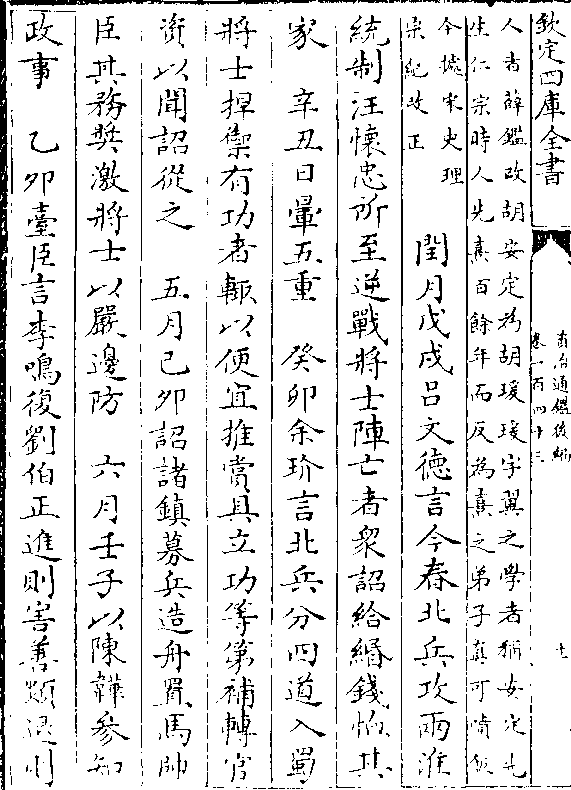 欽定四庫全書
資治通鑑後編
卷一百四十三
七
人者薛鑑改胡安定為胡瑗瑗字翼之學者稱安定先
生仁宗時人先熹百餘年而反為熹之弟子真可噴飯
今據宋史理
宗紀改正
閏月戊戌吕文德言今春北兵攻兩淮
統制汪懷忠所至逆戰將士陣亡者衆詔給緡錢恤其
家　辛丑日暈五重　癸卯余玠言北兵分四道入蜀
將士捍禦有功者輒以便宜推賞具立功等第補轉官
資以聞詔從之　五月己卯詔諸鎮募兵造舟置馬帥
臣其務奬激將士以嚴邊防　六月壬子以陳韡參知
政事　乙卯臺臣言李鳴復劉伯正進則害善類退則